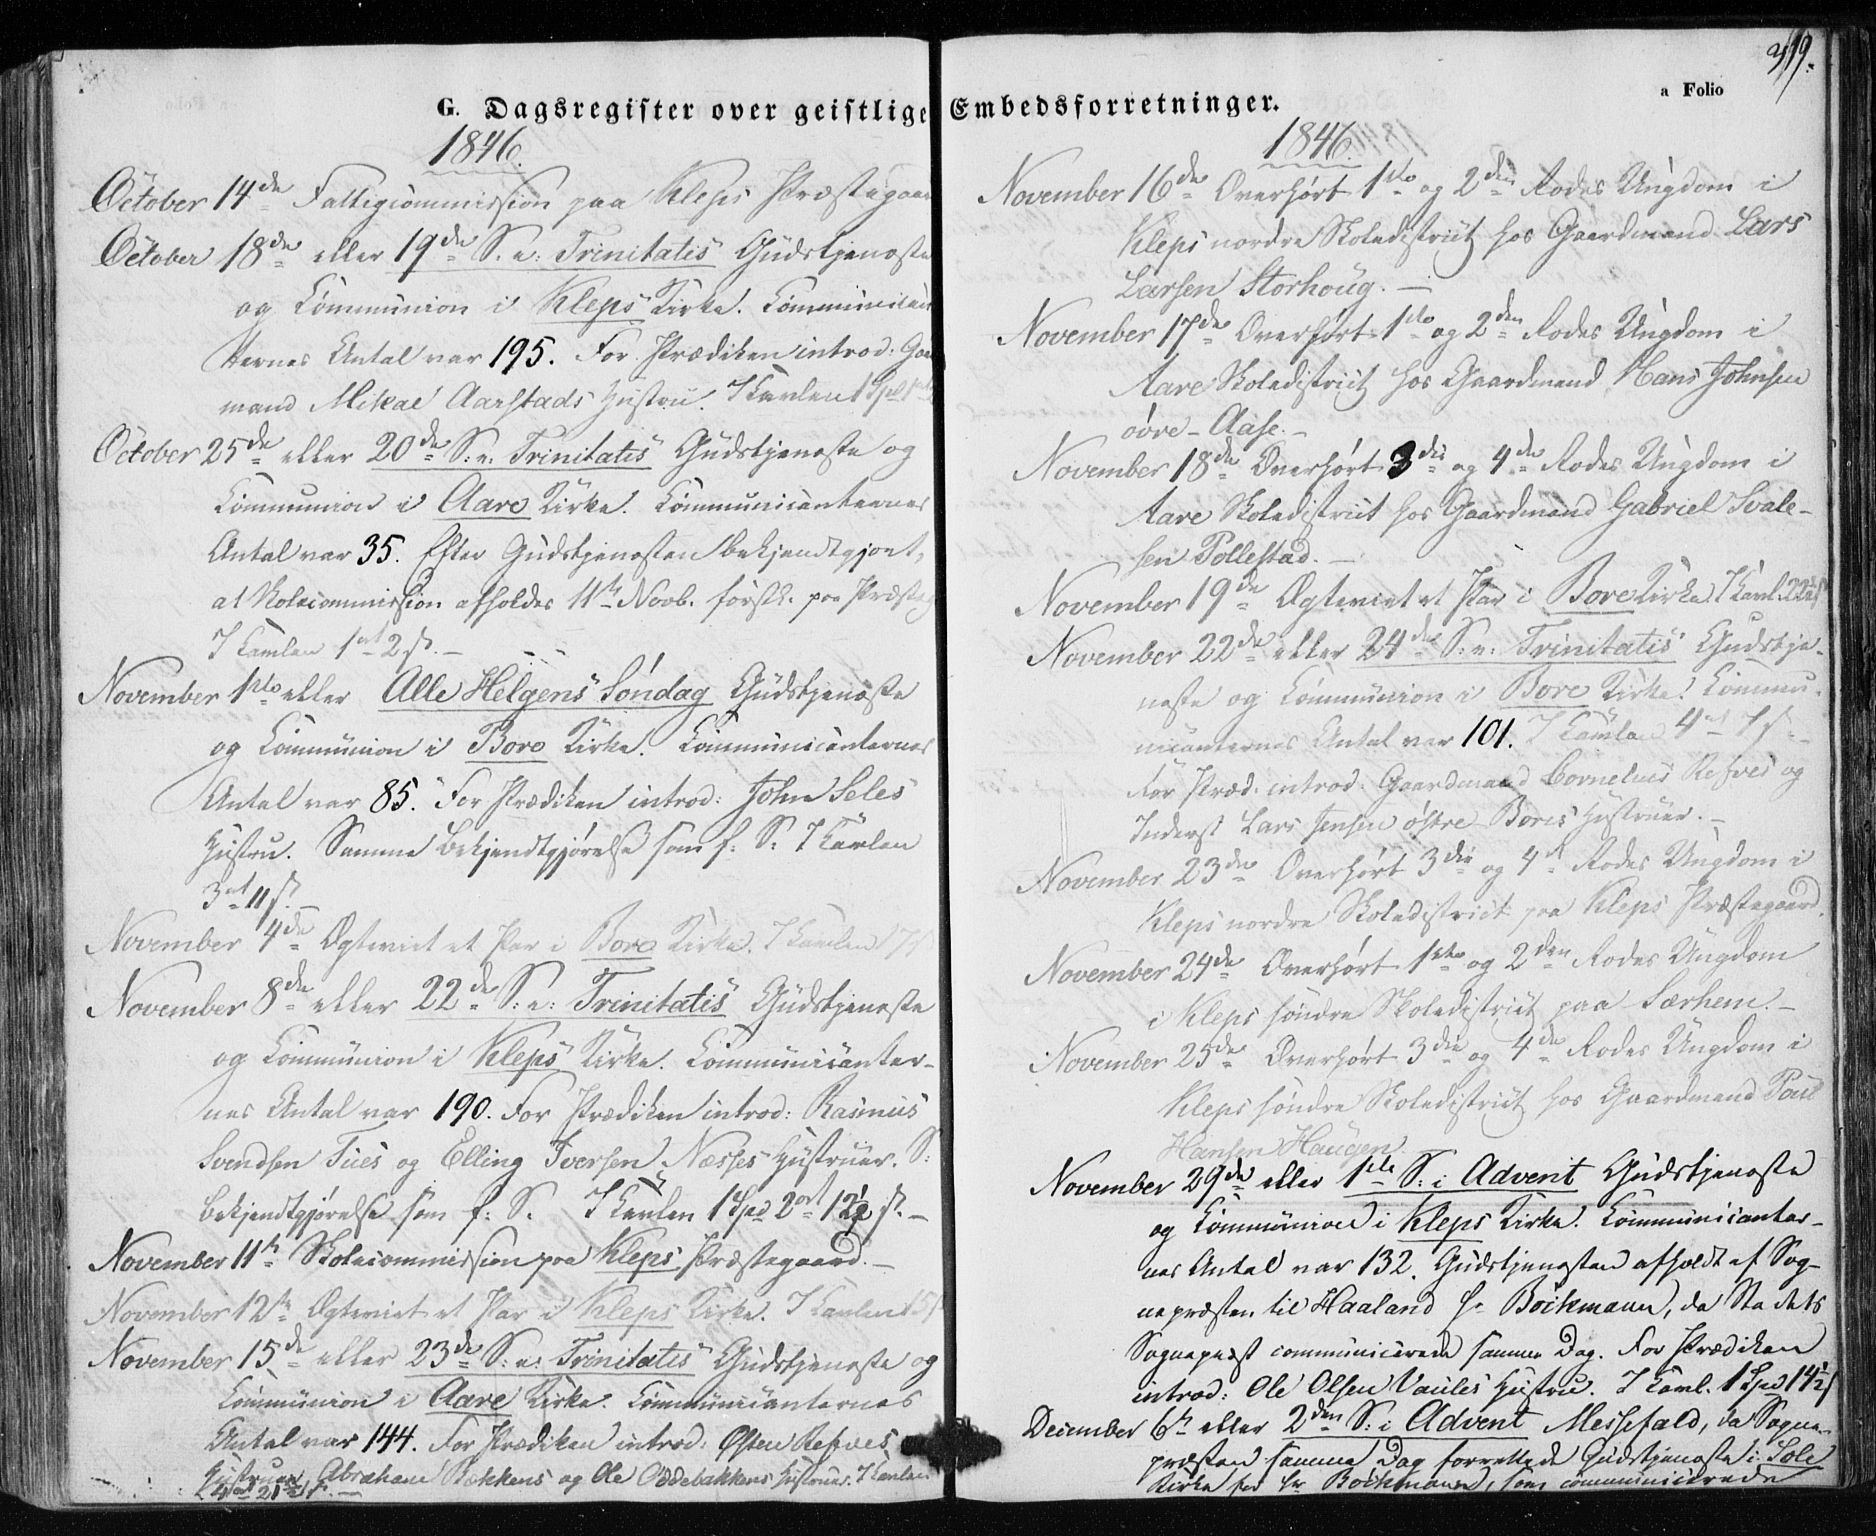 G. Dagsregister over geistlige Embedsforretninger.
a Folio
319.
1846.
October 14de Fattigcommission paa Kleps Præstegaar
October 18de eller 19de S. e: Trinitatis Gudstjeneste
og Communion i Kleps Kirke. Communican
ternes Antal var 195. For Prædiken introd: Gaa
mand Mikal Aarstads Hustru. I Tavlen 1 Spd
October 25de eller 20de S: e: Trinitatis Gudstjeneste og
Communion i Aare Kirke. Communicanternes
Antal var 35. Efter Gudstjenesten bekjendtgjort,
at Skolecommission afholdes 11te Novb. førstk. paa Præsteg
I Tavlen 1 ort 2 s. –
November 1ste eller Alle Helgens Søndag Gudstjeneste
og Communion i Bore Kirke. Communicanternes
Antal var 85. For Prædiken introd: John Seles
Hustru. Samme Bekjendtgjørelse som f: S: I Tavlen
3 ort 11 s. –
November 4de Ægteviet et Par i Bore Kirke. I Tavlen 17 s
November 8de eller 22de S: e: Trinitatis Gudstjeneste
og Communion i Kleps Kirke. Communicanter-
nes Antal var 190. For Prædiken introd: Rasmus
Svendsen Tues og Elling Iversen Næsses Hustruer. S:
Bekjendtgjørelse som f: S. I Tavlen 1 Spd 2 ort 12½ s. –
November 11te Skolecommission paa Kleps Præstegaard. –
November 12te Ægteviet et Par i Kleps Kirke. I Tavlen 15 s
November 15de eller 23de S: e: Trinitatis Gudstjeneste og
Communion i Aare Kirke. Communicanternes
Antal var 144. For Prædiken introd: Østen Refves
Hustruer, Abraham Bakkens og Ole Oddebakkens Hustruer. I Tavlen
4 ort 21 s. –
1846.
November 16de Overhørt 1ste og 2den Rodes Ungdom i
Kleps nordre Skoledistrict hos Gaardmand Lars
Larsen Storhoug. –
November 17de Overhørt 1ste og 2den Rodes Ungdom i
Aare Skoledistrict hos Gaardmand Hans Johnsen
øvre-Aase. –
November 18de Overhørt 3die og 4de Rodes Ungdom i
Aare Skoledistrict hos Gaardmand Gabriel Svale-
sen Pollestad. –
November 19de Ægteviet et Par i Bore Kirke. I Tavl. 22 s
November 22de eller 24de S: e: Trinitatis Gudstje-
neste og Communion i Bore Kirke. Commu-
nicanternes Antal var 101. I Tavlen 4 ort 7 s. –
For Præd: introd: Gaardmand Cornelius Refves og
Inderst Lars Jensen østre Bores Hustruer. –
November 23de Overhørt 3die og 4de Rodes Ungdom i
Kleps nordre Skoledistrict paa Kleps Præstegaard.
November 24de Overhørt 1ste og 2den Rodes Ungdom
i Kleps søndre Skoledistrict paa Særhem. –
November 25de Overhørt 3die og 4de Rodes Ungdom i
Kleps søndre Skoledistrict hos Gaardmand Poul
Hansen Haugen.
November 29de eller 1ste S: i Advent Gudstjeneste
og Communion i Kleps Kirke. Communicanter-
nes Antal var 132. Gudstjenesten afholdt af Sog-
nepræsten til Haaland Hr Böckmann, da Stedets
Sognepræst communicerede samme Dag. For Prædiken
introd: Ole Olsen Vaules Hustru. I Tavl. 1 Spd 14½ s
December 6te eller 2den S: i Advent Messefald, da Sogne-
præsten samme Dag forrettede Gudstjeneste i Sole
Kirke for Hr Böckmann, som communicerede